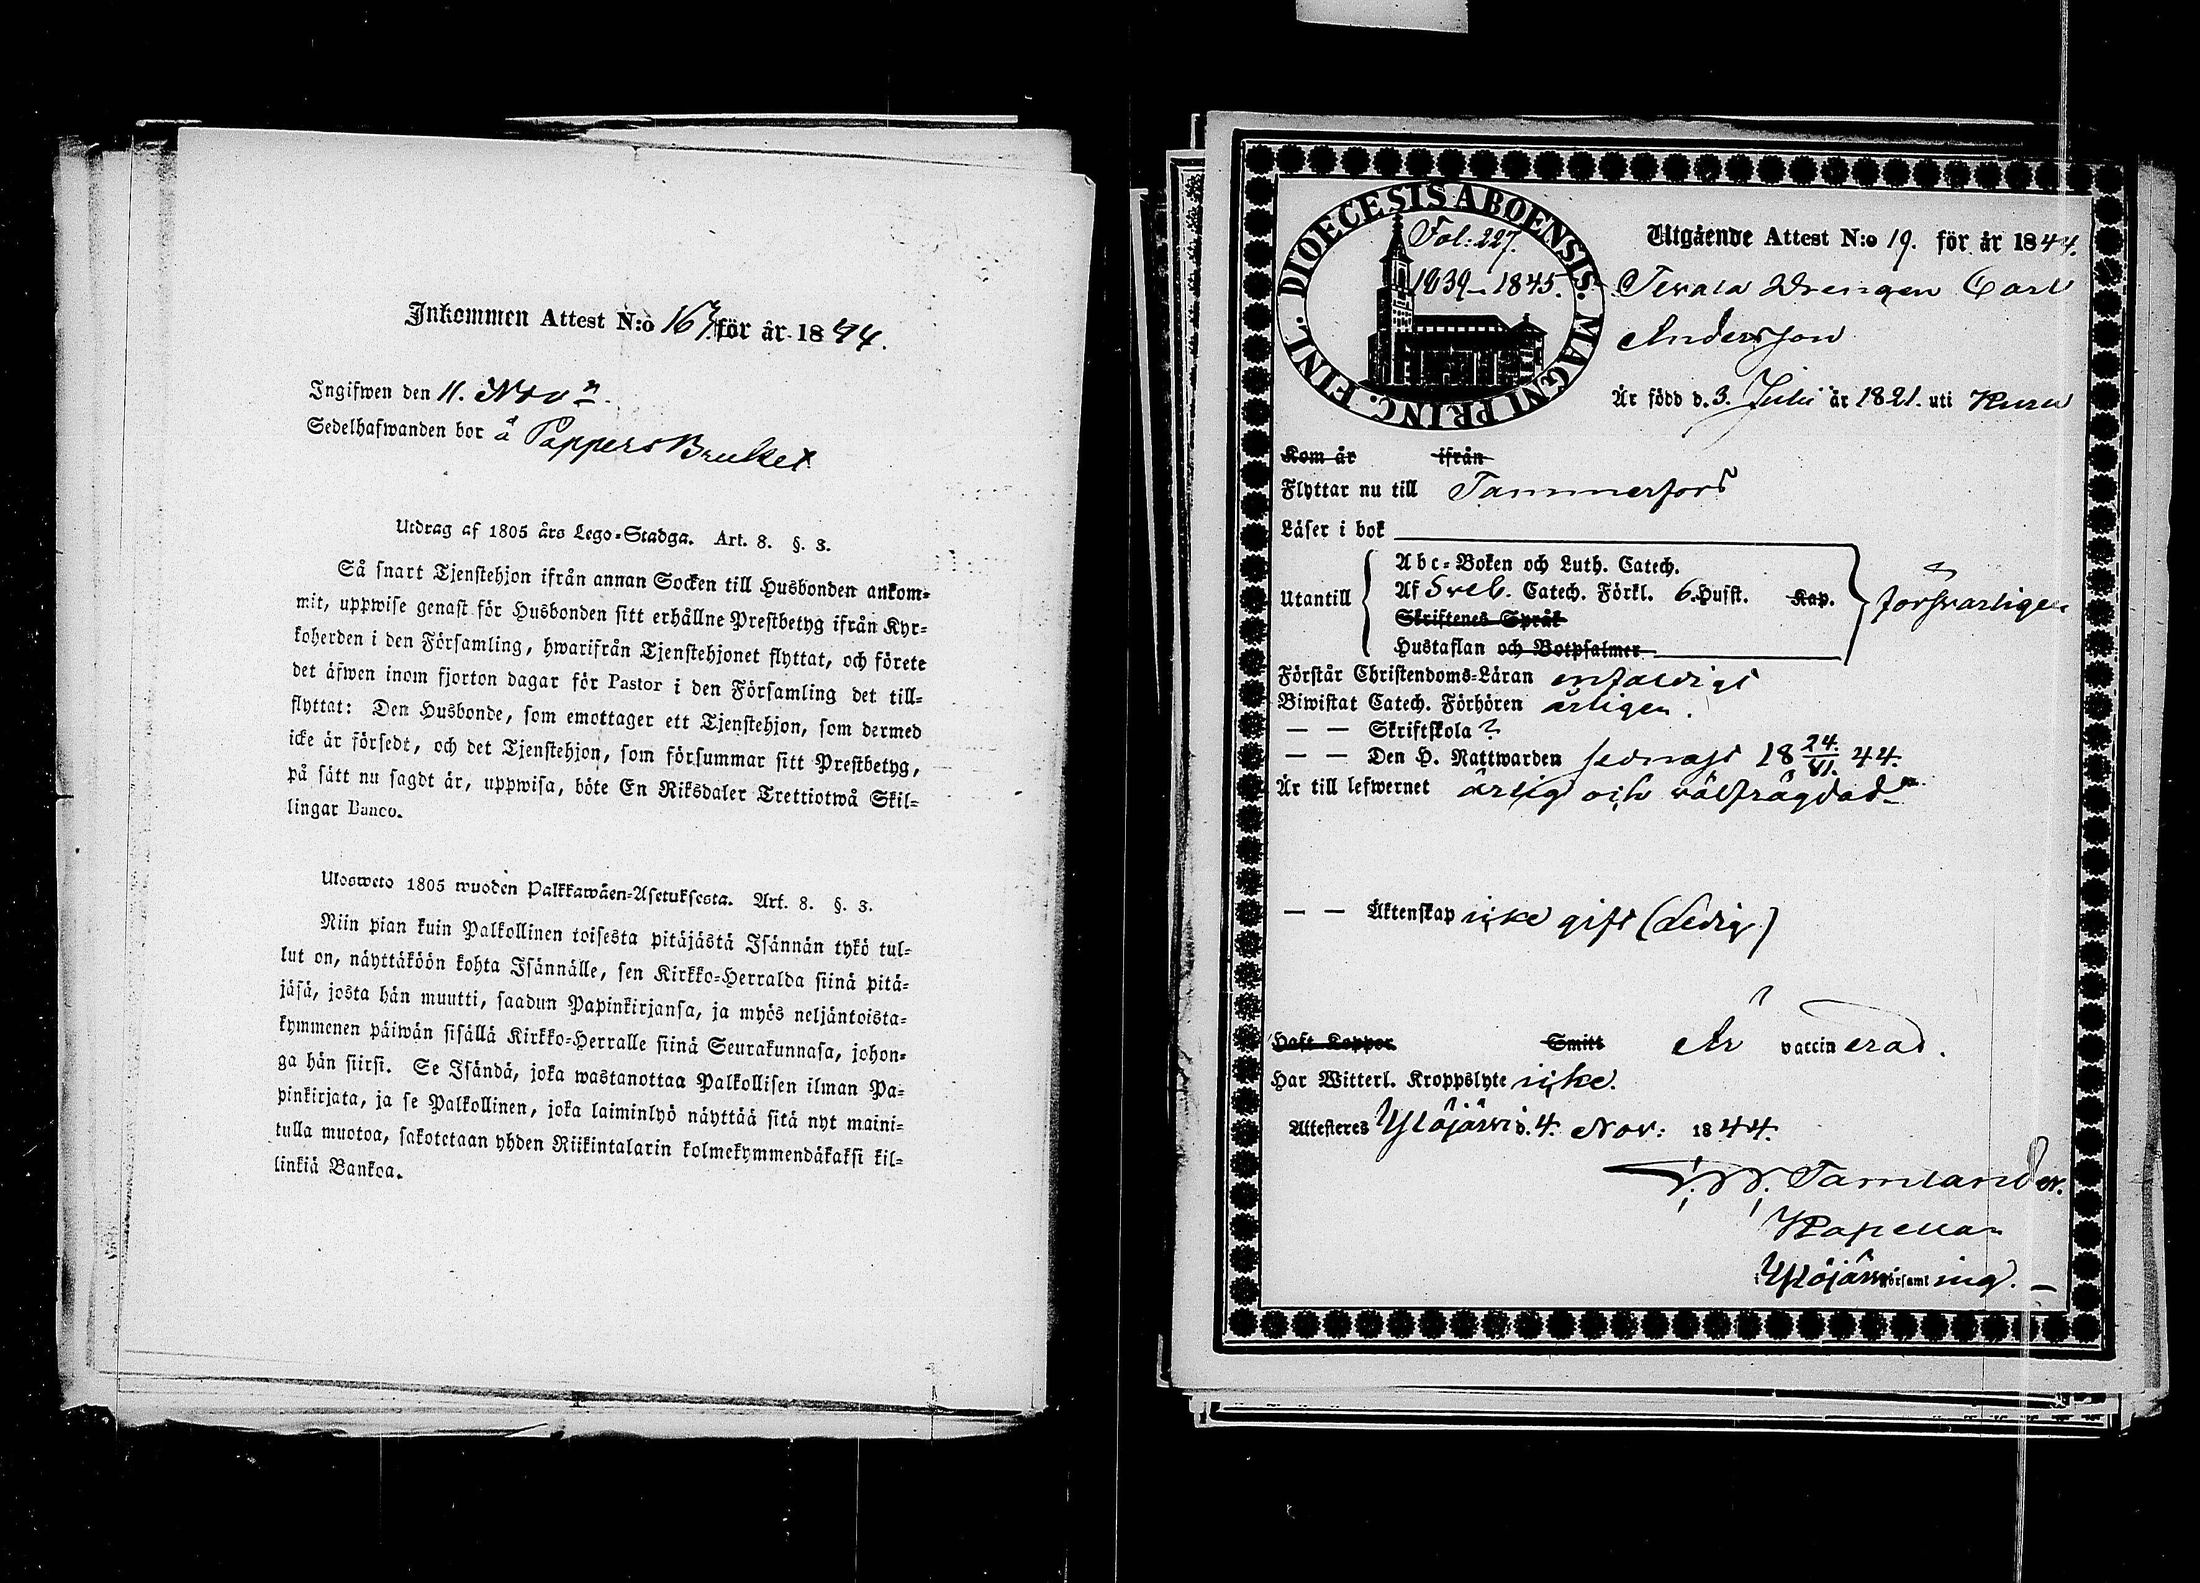 Inkommen Attest N:o 167. för år 1844.
Ingifwen den 11. Nov
Sedelhafwanden bor å Pappers Bruket
Utdrag af 1805 års Lego-Stadga. Art. 8. §. 3.
Så snart Tjenstehjon ifrån annan Socken till Husbonden ankom-
mit, uppwise genast för Husbonden sitt erhållne Prestbetyg ifrån Kyr-
koherden i den Församling, hwarifrån Tjenstehjonet flyttat, och förete
det äfwen inom fjorton dagar för Pastor i den Församling det till-
flyttat: Den Husbonde, som emottager ett Tjenstehjon, som dermed
icke är försedt, och det Tjenstehjon, som försummar sitt Prestbetyg,
på sätt nu sagdt är, uppwisa, böte En Riksdaler Trettiotwå Skil-
lingar Banco.
Ulosweto 1805 wuoden Palkkawäen-Asetuksesta. Art. 8. §. 3.
Niin pian kuin Palkollinen toisesta pitäjästä Isännän tykö tul-
lut on, näyttäköön kohta Isännälle, sen Kirkko-Herralda siinä pitä-
jäsä, josta hän muutti, saadun Papinkirjansa, ja myös neljäntoista-
kymmenen päiwän sisällä Kirkko-Herralle siinä Seurakunnasa, johon-
ga hän siirsi. Se Isändä, joka wastanottaa Palkollisen ilman Pa-
pinkirjata, ja se Palkollinen, joka laiminlyö näyttää sitä nyt maini-
tulla muotoa, sakotetaan yhden Riikintalarin kolmekymmendäkaksi kil-
linkiä Bankoa.
DIOECESIS ABOENSIS. MAGNI PRINC. FINL.
Fol: 227.
1839-1845.
Utgående Attest N:o 19. för år 1844.
Drengen Carl
Andersson
Är född d. 3. Julii år 1821. uti Kuru
Kom år ifrån
Flyttar nu till Tammerfors
Läser i bok
Utantill
Abc-Boken och Luth. Catech.
Af Sveb. Catech. Förkl. 6. Hufst. Kap.
Skriftenes Språk
Hustaflan och Botpsalmer
försvarligen
Förstår Christendoms-Läran enfaldigt
Biwistat Catech. Förhören årligen.
— — Skriftskola?
— — Den H. Nattwarden sednast 18 24/VI. 44.
Är till lefwernet ärlig och välfrägdad
— — Äktenskap icke gift (Ledig)
Haft Koppor Smitt Är vaccinerad.
Har Witterl. Kroppslyte icke.
Attesteres Ylöjärvi d. 4. Nov: 1844.
Tamlander.
Kapellan
i Ylöjärvi Församling. —